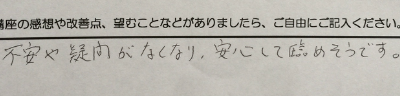 講座の感想や改善点、望むことなどがありましたら、ご自由にご記入ください。
不安や疑問がなくなり、安心して臨めそうです。